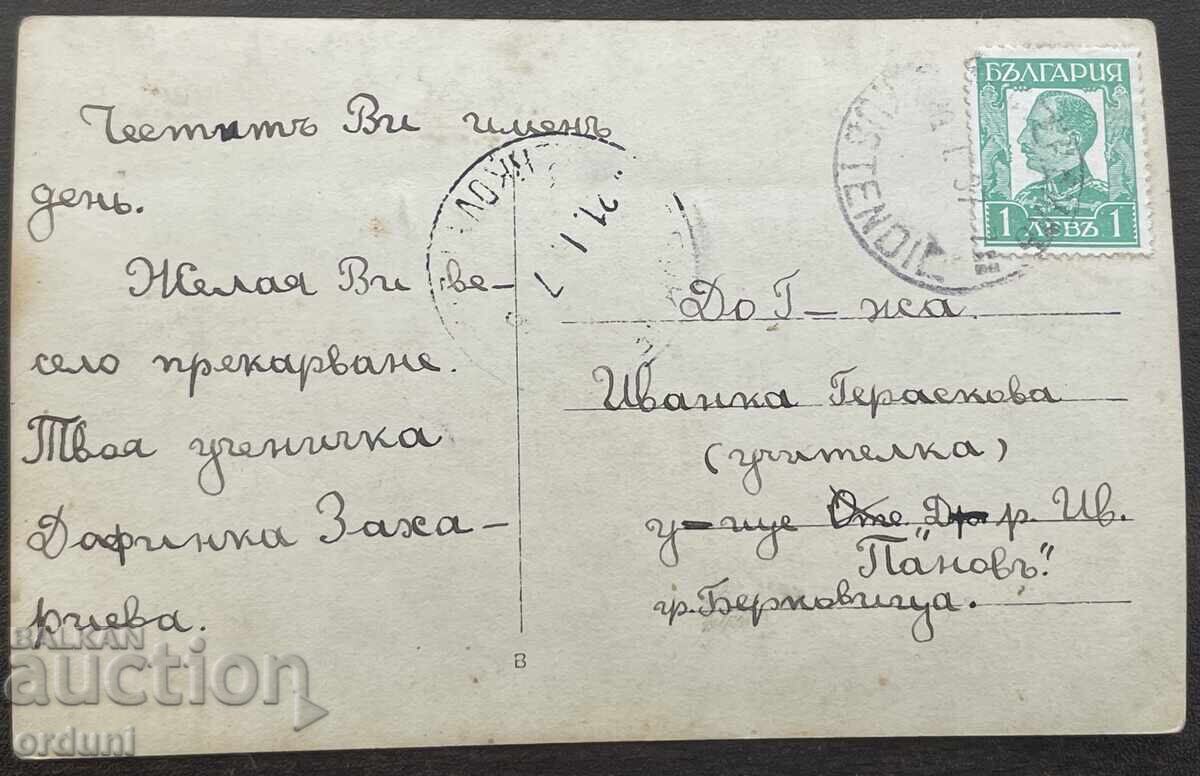 Честитъ Ви именъ
день.
Желая Ви ве-
село прекарване.
Твоя ученичка
Дафинка Заха-
риева.
БЪЛГАРИЯ
1 ЛЕВЪ 1
KUSTENDIL
21. I
До Г-жа
Иванка Гераскова
(учителка)
у-ще Др. Ив.
"Пановъ".
гр. Берковица.
В
BALKAN
auction
orduni